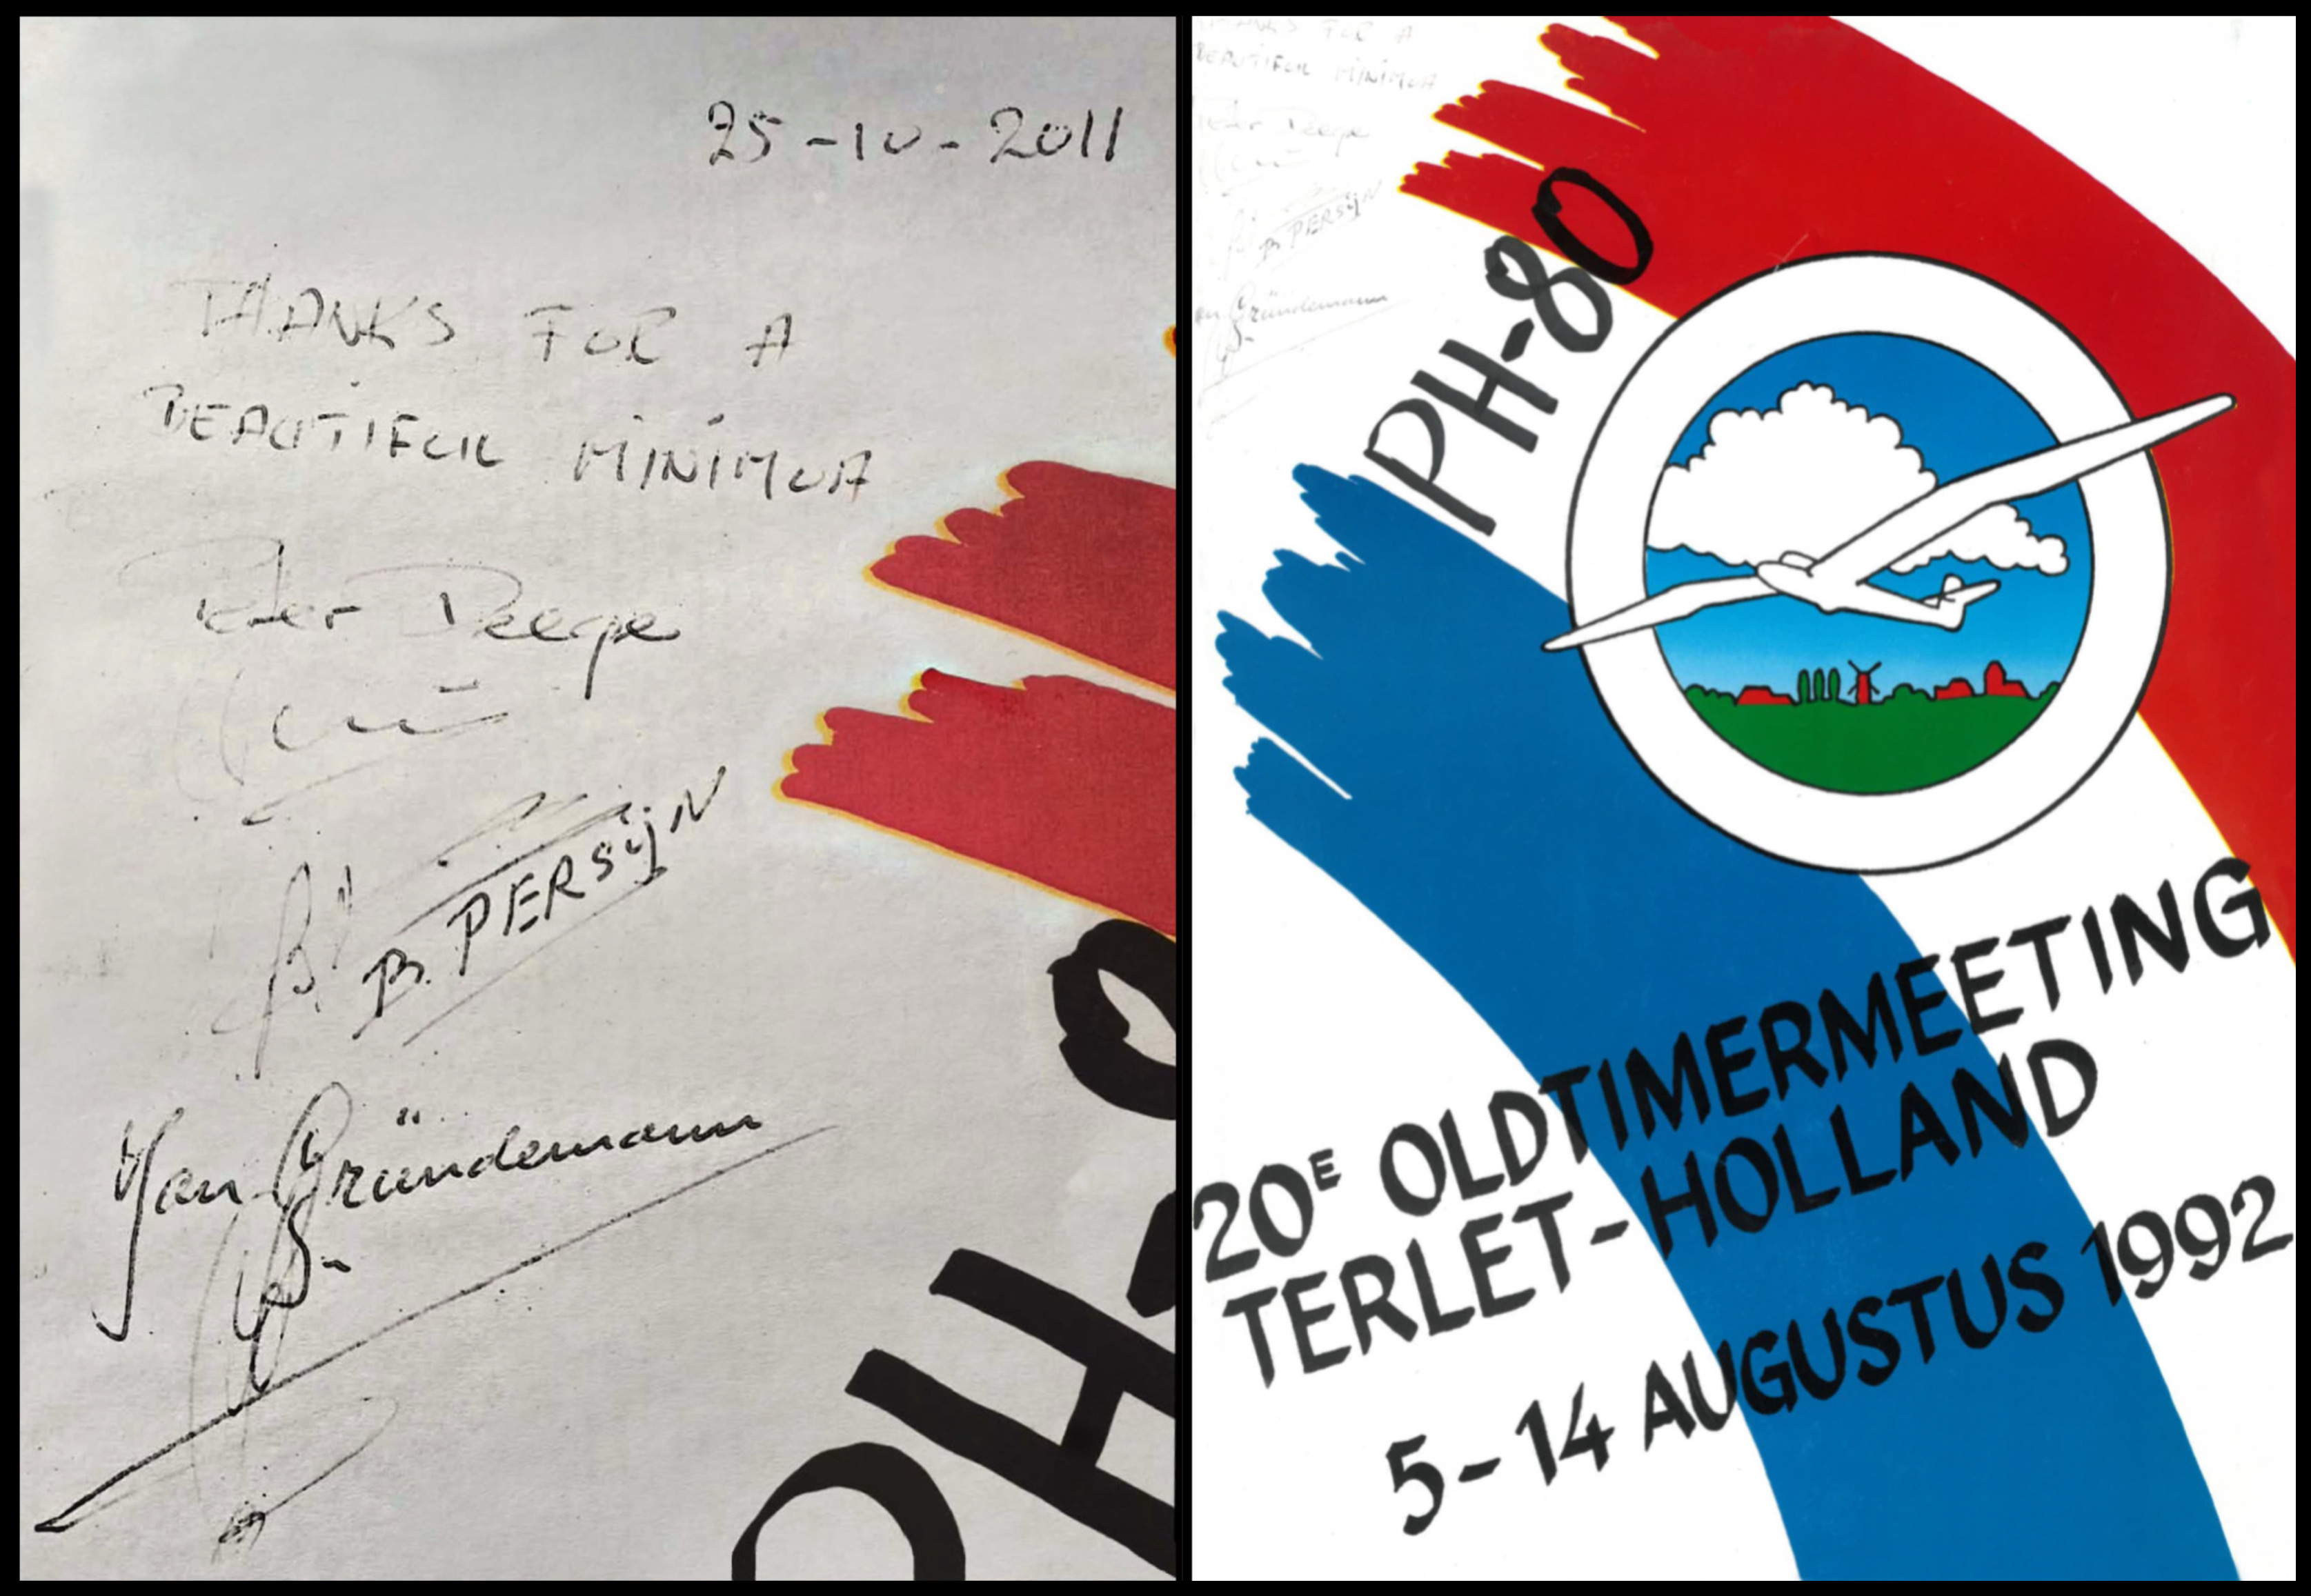 25-10-2011
THANKS FOR A
BEAUTIFUL MINIMOA
Peter Deege
B. PERSIJN
Han Gründemann
PH-
THANKS FOR A
BEAUTIFUL MINIMOA
Peter Deege
B. PERSIJN
Gründemann
PH-80
20E OLDTIMERMEETING
TERLET-HOLLAND
5-14 AUGUSTUS 1992